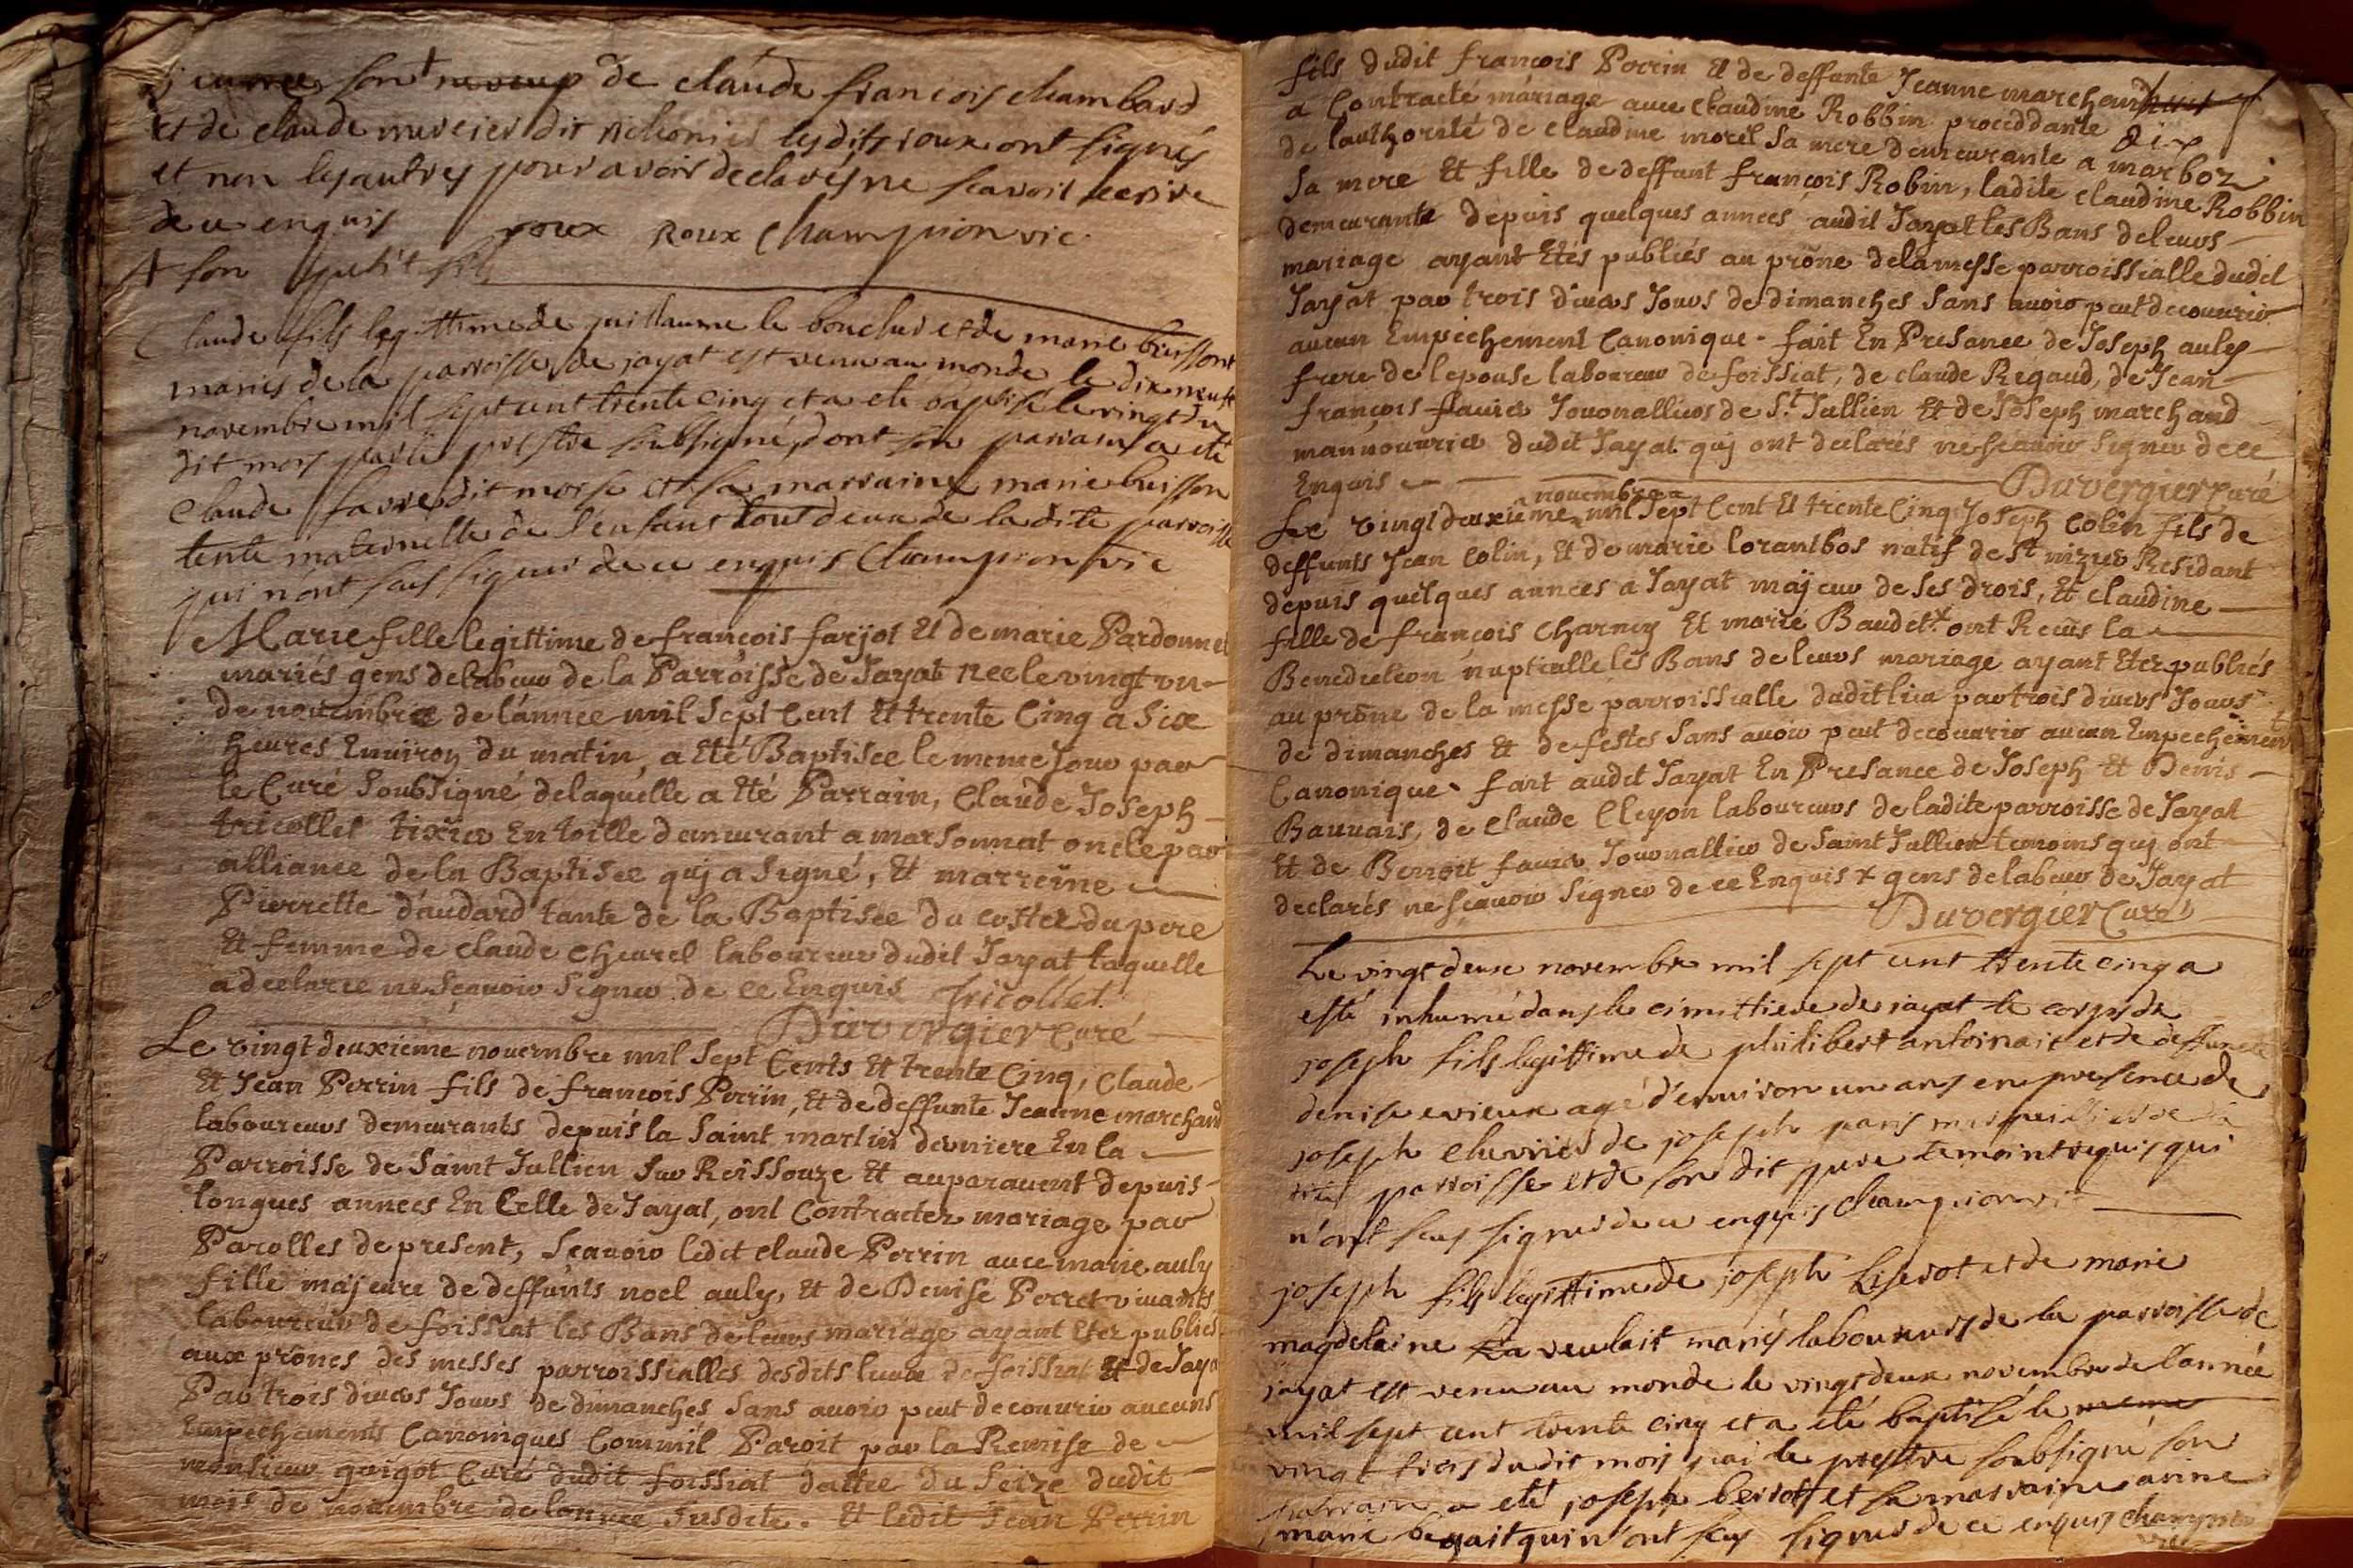 son de claude francois chambard
et de claude mercier dit les dits roux ont signés
et non les autres pour avoir declarés ne scavoir ecrire
de ce enquis roux Roux Championvic
son petit fils
Claude fils legittime de guillaume le boucher et de marie buisson
mariés de la parroisse de jayat est venu au monde le dix neuf
novembre mil sept cent trente cinq et a ete baptisé le vingt du
dit mois par le prestre soubsigné, dont son parrain a été
Claude favre dit et sa marraine marie buisson
tente maternelle de l'enfant tout deux de la dite parroisse
qui n'ont seus signer de ce enquis Championvic
Marie fille legittime de françois farjot Et de marie Pardonnet
mariés gens de labeur de la Parroisse de Jayat nee le vingt un
de novembre de l'annee mil Sept Cent Et trente Cinq a Six
heures Environ du matin, a Eté Baptisee le meme Jour par
le Curé Soubsigné de laquelle a Eté Parrain, Claude Joseph
tricollet tixier En toille demeurant a marsonnat oncle par
alliance de la Baptisee quj a Signé, Et marreine
Pierrette daudard tante de la Baptisee du costez du pere
Et femme de Claude Cheurel laboureur dudit Jayat laquelle
a declaree ne Sçauoir Signer de ce Enquis tricollet
Duvergier Curé
Le vingt deuxieme nouembre mil Sept Cents Et trente Cinq, Claude
Et Jean Perrin fils de francois Perrin, Et de deffunte Jeanne marchand
laboureurs demeurants depuis la Saint martin derniere En la
Parroisse de Saint Jullien Sur Reissouze Et auparauent depuis
longues annees En Celle de Jayat, ont Contractez mariage par
Parolles de present, Scauoir ledit Claude Perrin auec marie auly
fille majeure de deffunts noel auly, Et de Denise Perret viuants
laboureurs de foissiat les Bans de leurs mariage ayant Etez publies
aux prônes des messes parroissialles desdits lieux de foissiat Et de Jayat
Par trois diuers Jours de dimanches Sans auoir peut decouurir aucuns
Empechements Canoniques Commil Paroit par la Remise de
monsieur guigot Curé dudit foissiat dattee du Seize dudit
mois de nouembre de lannee Susdite. Et ledit Jean Perrin
fils dudit françois Perrin Et de deffunte Jeanne marchand
a Contracté mariage auec Claudine Robbin proceddante
de lauthorité de Claudine morel Sa mere demeurante a marboz
Sa mere Et fille de deffunt françois Robin, ladite Claudine Robbin
demeurante depuis quelques annees audit Jayat les Bans de leurs
mariage ayant Etés publiés au prône de la messe parroissialle dudit
Jayat par trois diuers Jours de dimanches Sans auoir peut decouurir
aucun Empechement Canonique. fait En Presance de Joseph auly
frere de lepouse laboureur de foissiat, de Claude Regaud, de Jean
françois fauier Jouonalliers de St. Jullien Et de Joseph marchand
mannouurier dudit Jayat quj ont declarés ne Scauoir Signer de ce
Enquis Duvergier Curé
Le vingt deuxieme nouembre mil Sept Cent Et trente Cinq Joseph Colin fils de
deffunts Jean Colin, Et de marie lorantbos natif de St nizier Residant
depuis quelques annees a Jayat majeur de Ses drois, Et Claudine
fille de françois Charney Et marie Baudet + ont Recüs la
Benediction nuptialle les Bans de leurs mariage ayant Etez publiés
au prône de la messe parroissialle dudit lieu par trois diuers Jours
de dimanches Et de festes Sans auoir peut decouurir aucun Empechement
Canonique. fait audit Jayat En Presance de Joseph Et Denis
Bauuais, de Claude Cleyon laboureurs de ladite parroisse de Jayat
Et de Benoit fauier Jouonallier de Saint Jullien temoins quj ont
declarés ne Scauoir Signer de ce Enquis + gens de labeur de Jayat
Duvergier Curé
Le vingt deux novembre mil sept cent trente cinq a
esté inhumé dans le cimittiere de jayat le corps de
joseph fils legittime de philibert antoinait et de deffuncte
denise vrieux agé d'environ un ans en presence de
joseph chevrier de joseph paris de la
parroisse et de son dit pere temoint requis qui
n'ont seus signer de ce enquis Championvic
joseph fils legittime de joseph liserot et de marie
magdelaine mariés laboureurs de la parroisse de
jayat est venu au monde le vingt deux novembre de l'année
mil sept cent trente cinq et a eté baptisé le meme
vingt trois du dit mois par le prestre soubsigné son
parrain a eté joseph et sa marraine anne
marie begait qui n'ont seus signer de ce enquis Championvic